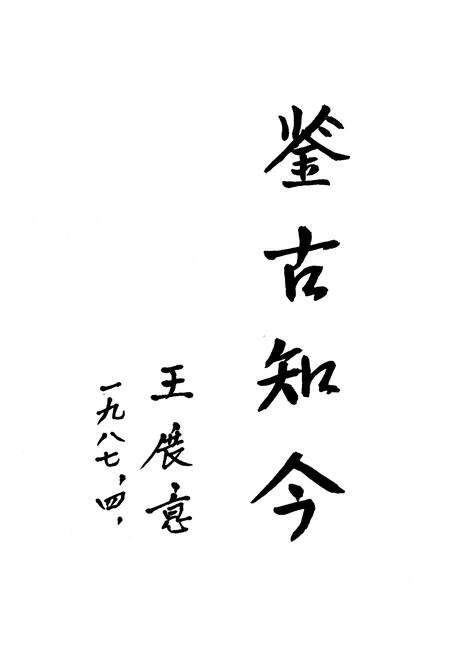 鉴古知今
王展意
一九八七、四、